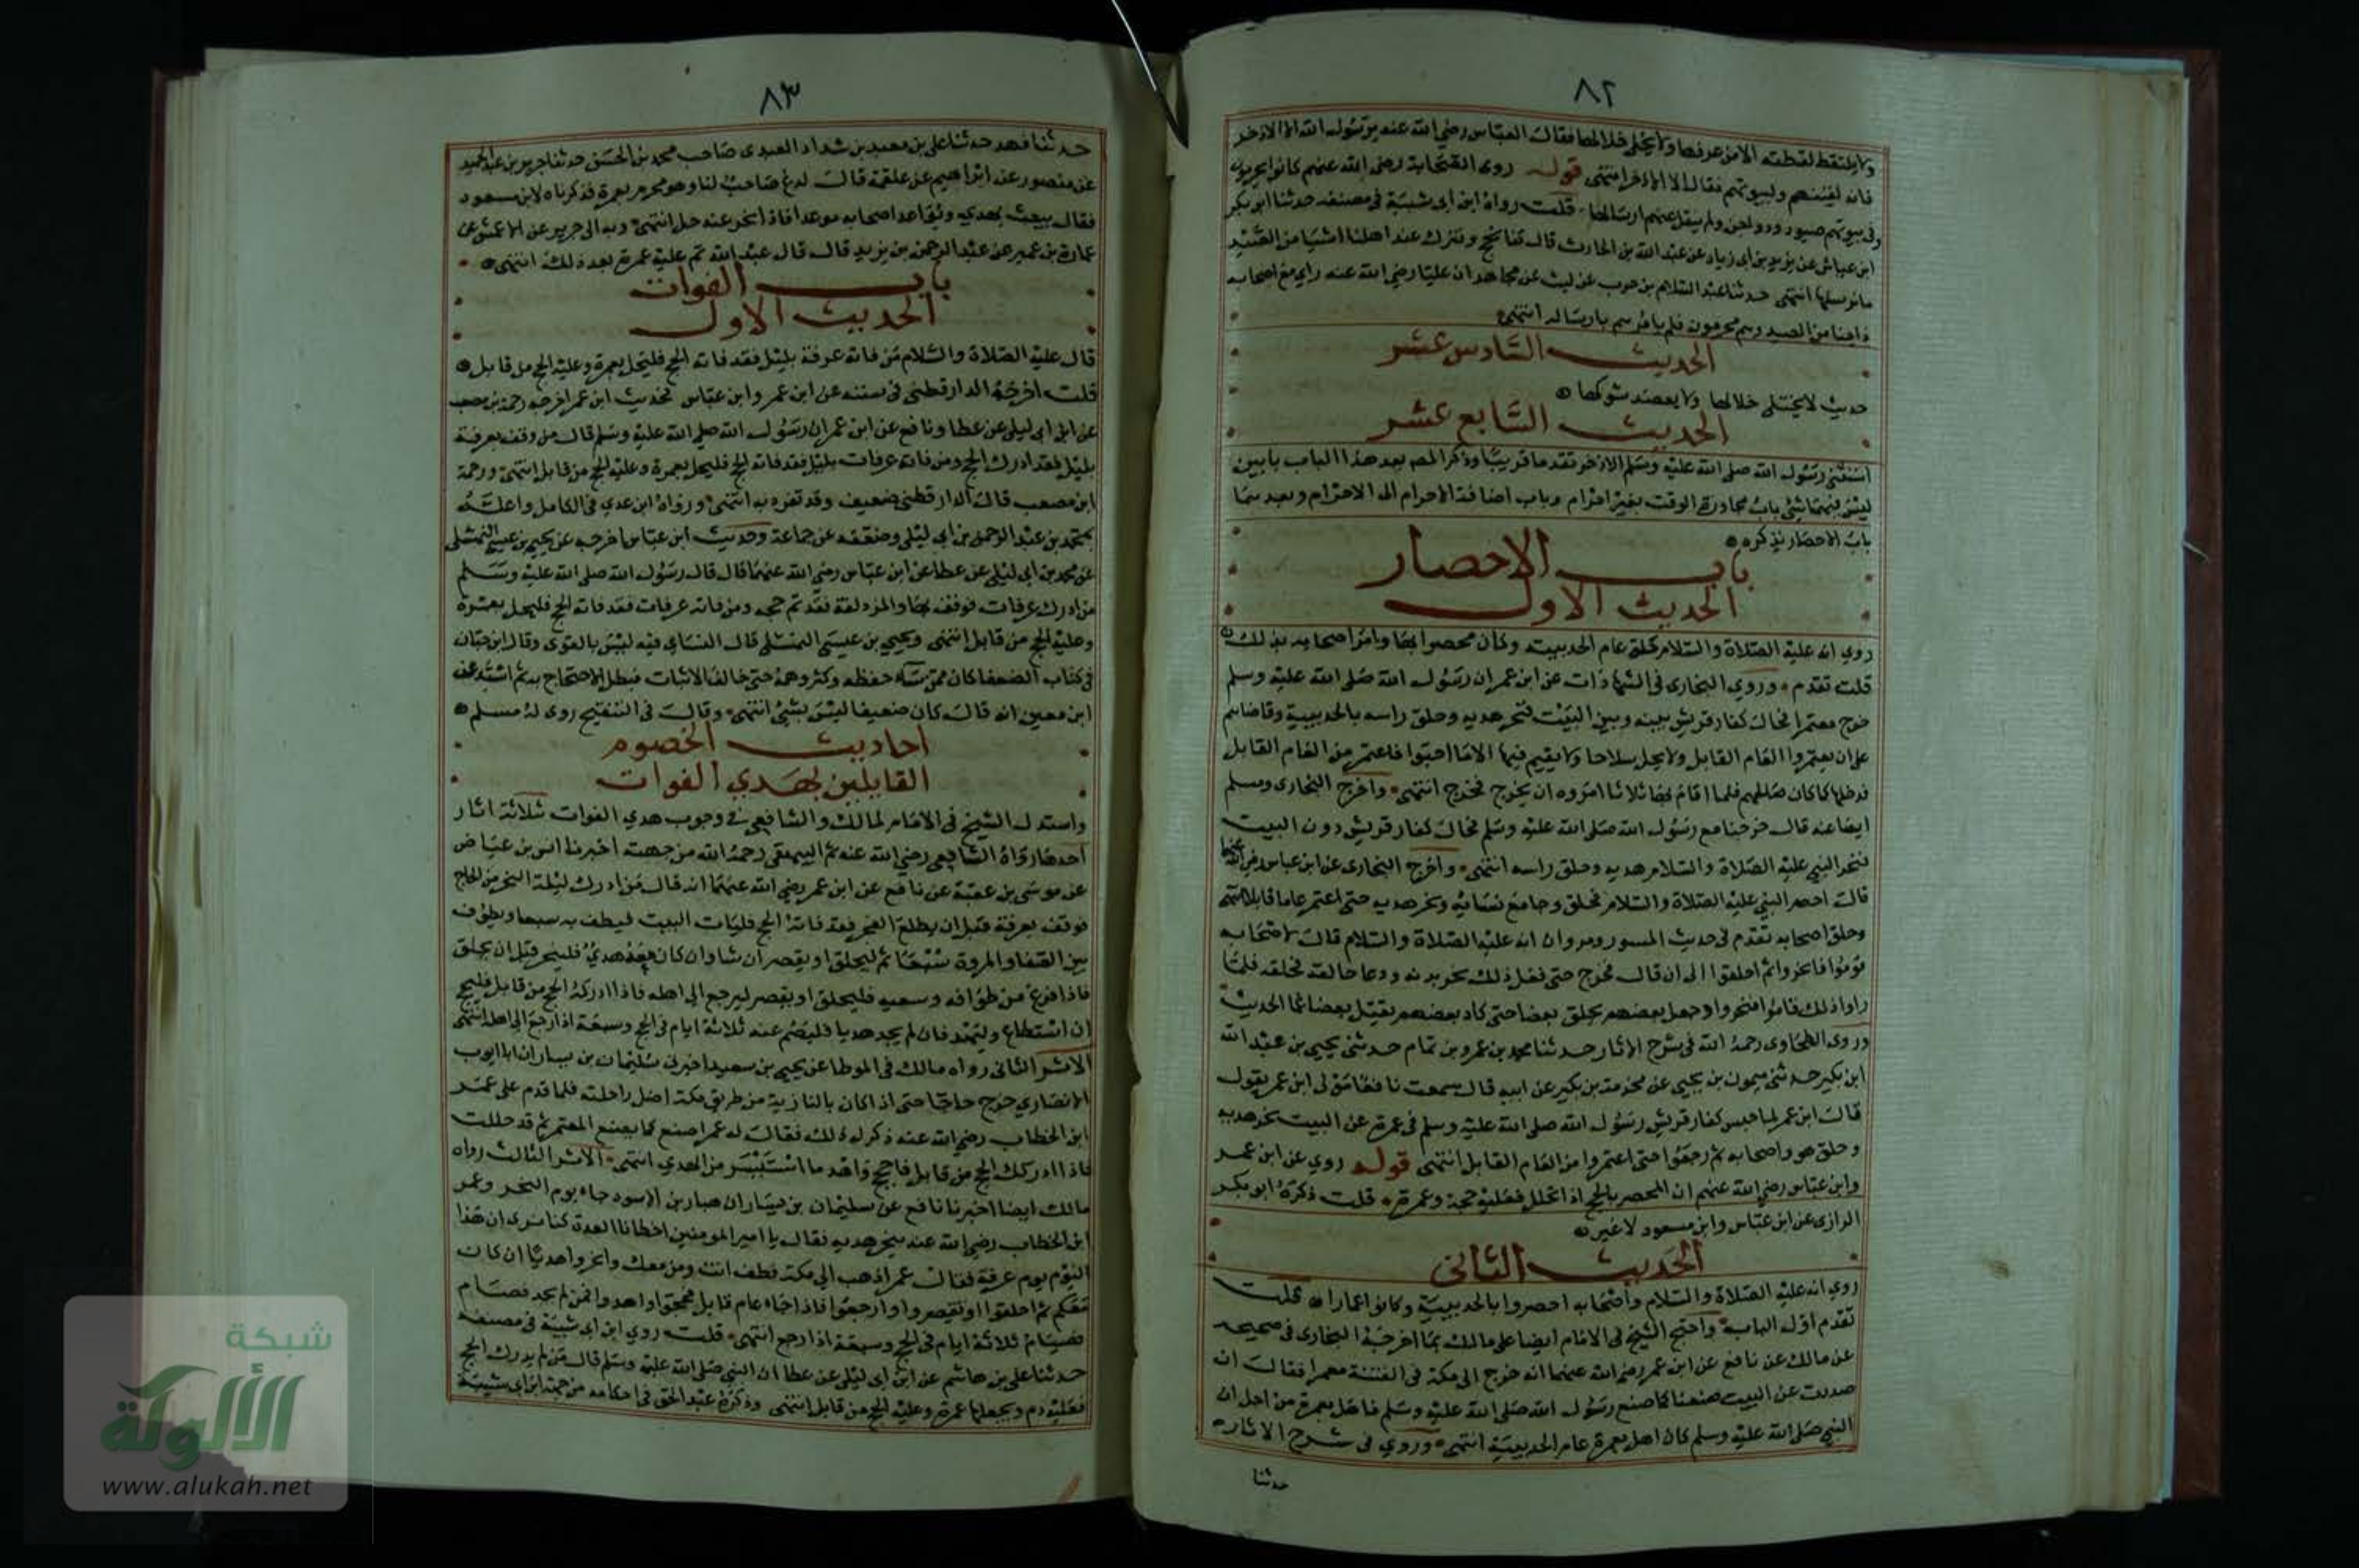 ٨٢
ولا يلتقط لقطته الا من عرفها ولا يختلى خلالها فقال العباس رضي الله عنه يرسول الله الا الاذخر
فانه لقينهم ولبيوتهم فقال الا الاذخر انتهى قوله روى الصحابة رضي الله عنهم كانوا يحرمون
وفي بيوتهم صيود ودواجن ولم ينقل عنهم ارسالها قلت رواه ابن ابي شيبة في مصنفه حدثنا ابو بكر
ابن عياش عن يزيد بن ابي زياد عن عبد الله بن الحارث قال كنا نحج ونترك عند اهلنا اشيا من الصيد
ما نرسلها انتهى حدثنا عبد السلام بن حرب عن ليث عن مجاهد ان عليا رضي الله عنه راي مع اصحابه
داجنا من الصيد وهم محرمون فلم يامرهم بارساله انتهى
الحديث السادس عشر
حديث لا يختلى خلالها ولا يعضد شوكها
الحديث السابع عشر
استثنى رسول الله صلى الله عليه وسلم الاذخر تقدما قريبا وذكر المص بعد هذا الباب بابين
ليس فيهما شئ باب مجاوزة الوقت بغير احرام وباب اضافة الاحرام الى الاحرام وبعدهما
باب الاحصار نذكره
باب الاحصار
الحديث الاول
روي انه عليه الصلاة والسلام حلق عام الحديبية وكان محصورا بها وامر اصحابه بذلك
قلت تقدم وروي البخاري في الشهادات عن ابن عمر ان رسول الله صلى الله عليه وسلم
خرج معتمرا فحال كفار قريش بينه وبين البيت فنحر هديه وحلق راسه بالحديبية وقاضاهم
على ان يعتمروا العام القابل ولا يحمل سلاحا ولا يقيم فيها الا ما احبوا فاعتمر من العام القابل
فدخلها كما كان صالحهم فلما اقام بها ثلاثا امروه ان يخرج فخرج انتهى واخرج البخاري ومسلم
ايضا عنه قال خرجنا مع رسول الله صلى الله عليه وسلم فحال كفار قريش دون البيت
فنحر النبي عليه الصلاة والسلام هديه وحلق راسه انتهى واخرج البخاري عن ابن عباس رضي الله عنهما
قال احصر النبي عليه الصلاة والسلام فحلق وجامع نسائه ونحر هديه حتى اعتمر عاما قابلا انتهى
وحلق اصحابه تقدم في حديث المسور ومروان انه عليه الصلاة والسلام قال لاصحابه
قوموا فانحروا ثم احلقوا الى ان قال فخرج حتى فعل ذلك نحر بدنه ودعا حالقه فحلقه فلما
راوا ذلك قاموا فنحروا وجعل بعضهم يحلق بعضا حتى كاد بعضهم يقتل بعضا غما الحديث
وروى الطحاوي رحمه الله في شرح الاثار حدثنا محمد بن عمرو بن تمام حدثني يحيى بن عبد الله
ابن بكير حدثني ميمون بن يحيى عن مخرمة بن بكير عن ابيه قال سمعت نافعا مولى ابن عمر يقول
قال ابن عمر لما حبس كفار قريش رسول الله صلى الله عليه وسلم في عمرة عن البيت نحر هديه
وحلق هو واصحابه ثم رجعوا حتى اعتمروا من العام القابل انتهى قوله روي عن ابن عمر
وابن عباس رضي الله عنهم ان المحصر بالحج اذا تحلل فعليه حجة وعمرة قلت ذكره ابو بكر
الرازي عن ابن عباس وابن مسعود لا غير
الحديث الثاني
روي انه عليه الصلاة والسلام واصحابه احصروا بالحديبية وكانوا عمارا قلت
تقدم اول الباب واحتج الشيخ في الامام ايضا على مالك بما اخرجه البخاري في صحيحه
عن مالك عن نافع عن ابن عمر رضي الله عنهما انه خرج الى مكة في الفتنة معتمرا فقال ان
صددت عن البيت صنعنا كما صنع رسول الله صلى الله عليه وسلم فاهل بعمرة من اجل ان
النبي صلى الله عليه وسلم كان اهل بعمرة عام الحديبية انتهى وروي في شرح الاثار
حدثنا
٨٣
حدثنا فهد حدثنا علي بن معبد بن شداد العبدي صاحب محمد بن الحسن حدثنا جرير بن عبد الحميد
عن منصور عن ابراهيم عن علقمة قال لدغ صاحب لنا وهو محرم بعمرة فذكرناه لابن مسعود
فقال يبعث بهدي ويواعد اصحابه موعدا فاذا نحر عنه حل انتهى وبه الى جرير عن الاعمش عن
عمارة بن عمير عن عبد الرحمن بن يزيد قال قال عبد الله ثم عليه عمرة بعد ذلك انتهى
باب الفوات
الحديث الاول
قال عليه الصلاة والسلام من فاته عرفة بليل فقد فاته الحج فليحل بعمرة وعليه الحج من قابل
قلت اخرجه الدارقطني في سننه عن ابن عمر وابن عباس فحديث ابن عمر اخرجه رحمة بن مصعب
عن ابن ابي ليلى عن عطا ونافع عن ابن عمر ان رسول الله صلى الله عليه وسلم قال من وقف بعرفة
بليل فقد ادرك الحج ومن فاته عرفات بليل فقد فاته الحج فليحل بعمرة وعليه الحج من قابل انتهى ورحمة
ابن مصعب قال الدارقطني ضعيف وقد تفرد به انتهى ورواه ابن عدي في الكامل واعله
بمحمد بن عبد الرحمن بن ابي ليلى وضعفه عن جماعة وحديث ابن عباس اخرجه عن يحيى بن عيسى النهشلي
عن محمد بن ابي ليلى عن عطا عن ابن عباس رضي الله عنهما قال قال رسول الله صلى الله عليه وسلم
من ادرك عرفات فوقف بها والمزدلفة فقد تم حجه ومن فاته عرفات فقد فاته الحج فليحل بعمرة
وعليه الحج من قابل انتهى ويحيى بن عيسى النهشلي قال النساي فيه ليس بالقوى وقال ابن حبان
في كتاب الضعفا كان ممن ساء حفظه وكثر وهمه حتى خالف الاثبات فبطل الاحتجاج به ثم اسند عن
ابن معين انه قال كان ضعيفا ليس بشئ انتهى وقال في التنقيح روى له مسلم
احاديث الخصوم
القايلين بهدي الفوات
واستدل الشيخ في الامام لمالك والشافعي في وجوب هدي الفوات بثلاثة اثار
احدها رواه الشافعي رضي الله عنه ثم البيهقي رحمه الله من جهته اخبرنا انس بن عياض
عن موسى بن عقبة عن نافع عن ابن عمر رضي الله عنهما انه قال من ادرك ليلة النحر من الحاج
فوقف بعرفة قبل ان يطلع الفجر فقد فاته الحج فليات البيت ليطف به سبعا ويطوف
بين الصفا والمروة سبعا ثم ليحلق او يقصر ان شا وان كان معه هدي فلينحر قبل ان يحلق
فاذا فرغ من طوافه وسعيه فليحلق او يقصر ليرجع الى اهله فاذا ادركه الحج من قابل فليحج
ان استطاع وليهد فان لم يجد هديا فليصم عنه ثلاثة ايام في الحج وسبعة اذا رجع الى اهله انتهى
الاثر الثاني رواه مالك في الموطا عن يحيى بن سعيد اخبرني سليمان بن يسار ان ابا ايوب
الانصاري خرج حاجا حتى اذا كان بالنازية من طريق مكة اضل راحلته فلما قدم على عمر
ابن الخطاب رضي الله عنه ذكر له ذلك فقال له عمر اصنع كما يصنع المعتمر ثم قد حللت
فاذا ادركك الحج من قابل فاحجج واهد ما استيسر من الهدي انتهى الاثر الثالث رواه
مالك ايضا اخبرنا نافع عن سليمان بن يسار ان هبار بن الاسود جاء يوم النحر وعمر
ابن الخطاب رضي الله عنه ينحر هديه فقال يا امير المومنين اخطانا العدة كنا نرى ان هذا
اليوم يوم عرفة فقال عمر اذهب الي مكة فطف انت ومن معك وانحروا هديا ان كان
معكم ثم احلقوا او تقصروا وارجعوا فاذا جاء عام قابل فحجوا واهدوا فمن لم يجد فصيام
فصيام ثلاثة ايام في الحج وسبعة اذا رجع انتهى قلت روي ابن ابي شيبة في مصنفه
حدثنا علي بن هاشم عن ابن ابي ليلى عن عطا ان النبي صلى الله عليه وسلم قال من لم يدرك الحج
فعليه دم ويجعلها عمرة وعليه الحج من قابل انتهى وذكره عبد الحق في احكامه من جهة ابن ابي شيبة
شبكة
الألوكة
www.alukah.net